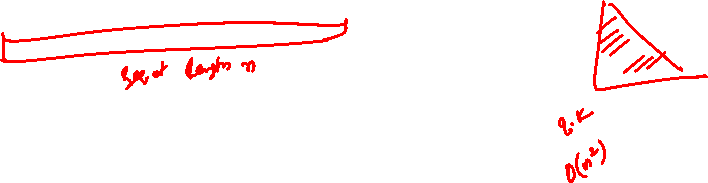 Seq of length n
q.k
O(n²)